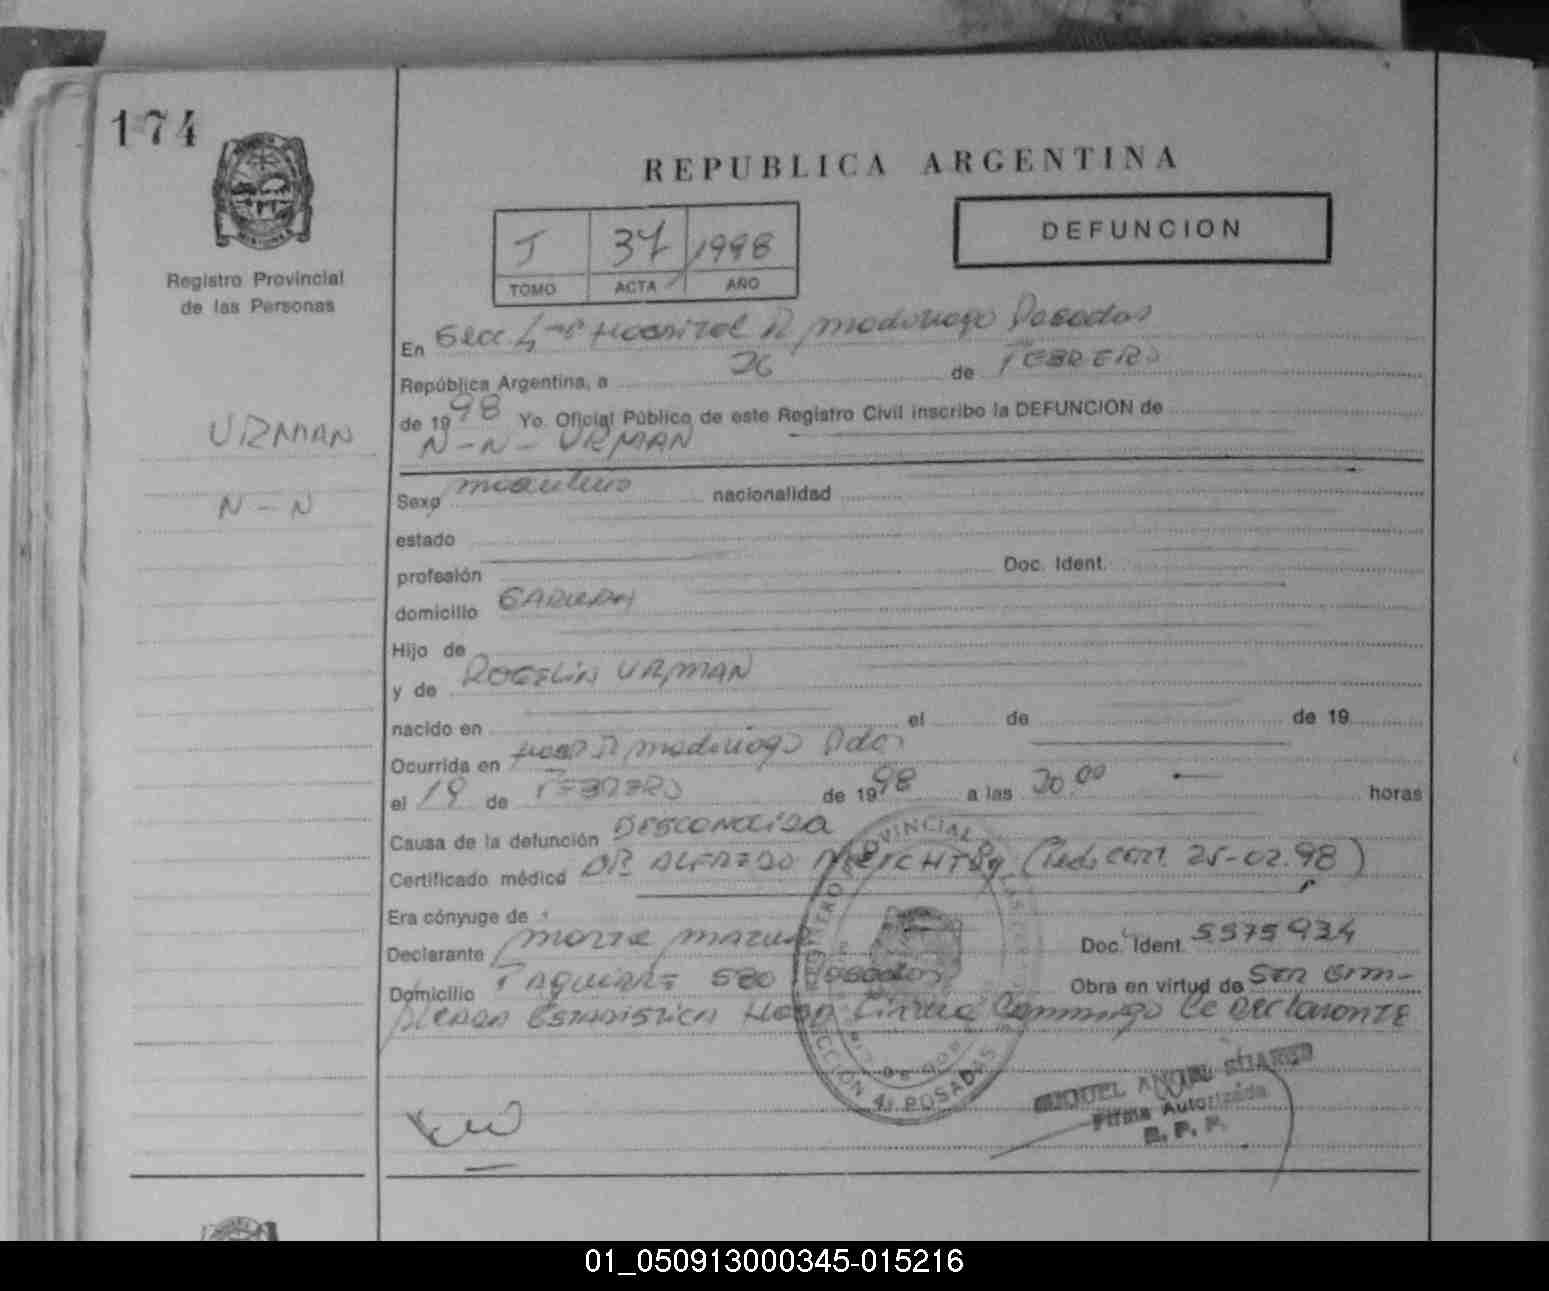 174
REPUBLICA ARGENTINA
DEFUNCION
1998
TOMO ACTA AÑO
Registro Provincial
de las Personas
En Secc. Hospital R. Madariaga Posadas
República Argentina, a 26 de FEBRERO
de 1998 Yo. Oficial Público de este Registro Civil inscribo la DEFUNCION de
URMAN
N-N- URMAN
N-N
Sexo masculino nacionalidad
estado
profesión Doc. Ident.
domicilio GARUPA
Hijo de
y de ROGELIA URMAN
nacido en el de de 19
Ocurrida en Hosp R Madariaga Pdas
el 19 de FEBRERO de 1998 a las 20 00 horas
Causa de la defunción DESCONOCIDA
Certificado médico DR ALFREDO (Fecha cert. 25-02.98)
Era cónyuge de
Declarante Doc. Ident. 5575934
Domicilio 580 Posadas Obra en virtud de Ser em-
pleada Estadistica Hosp Firma Conmigo la declarante
REGISTRO PROVINCIAL DE LAS PERSONAS
SECCION 4a POSADAS
MIGUEL ANGEL SUAREZ
Firma Autorizada
R. P. P.
01_050913000345-015216